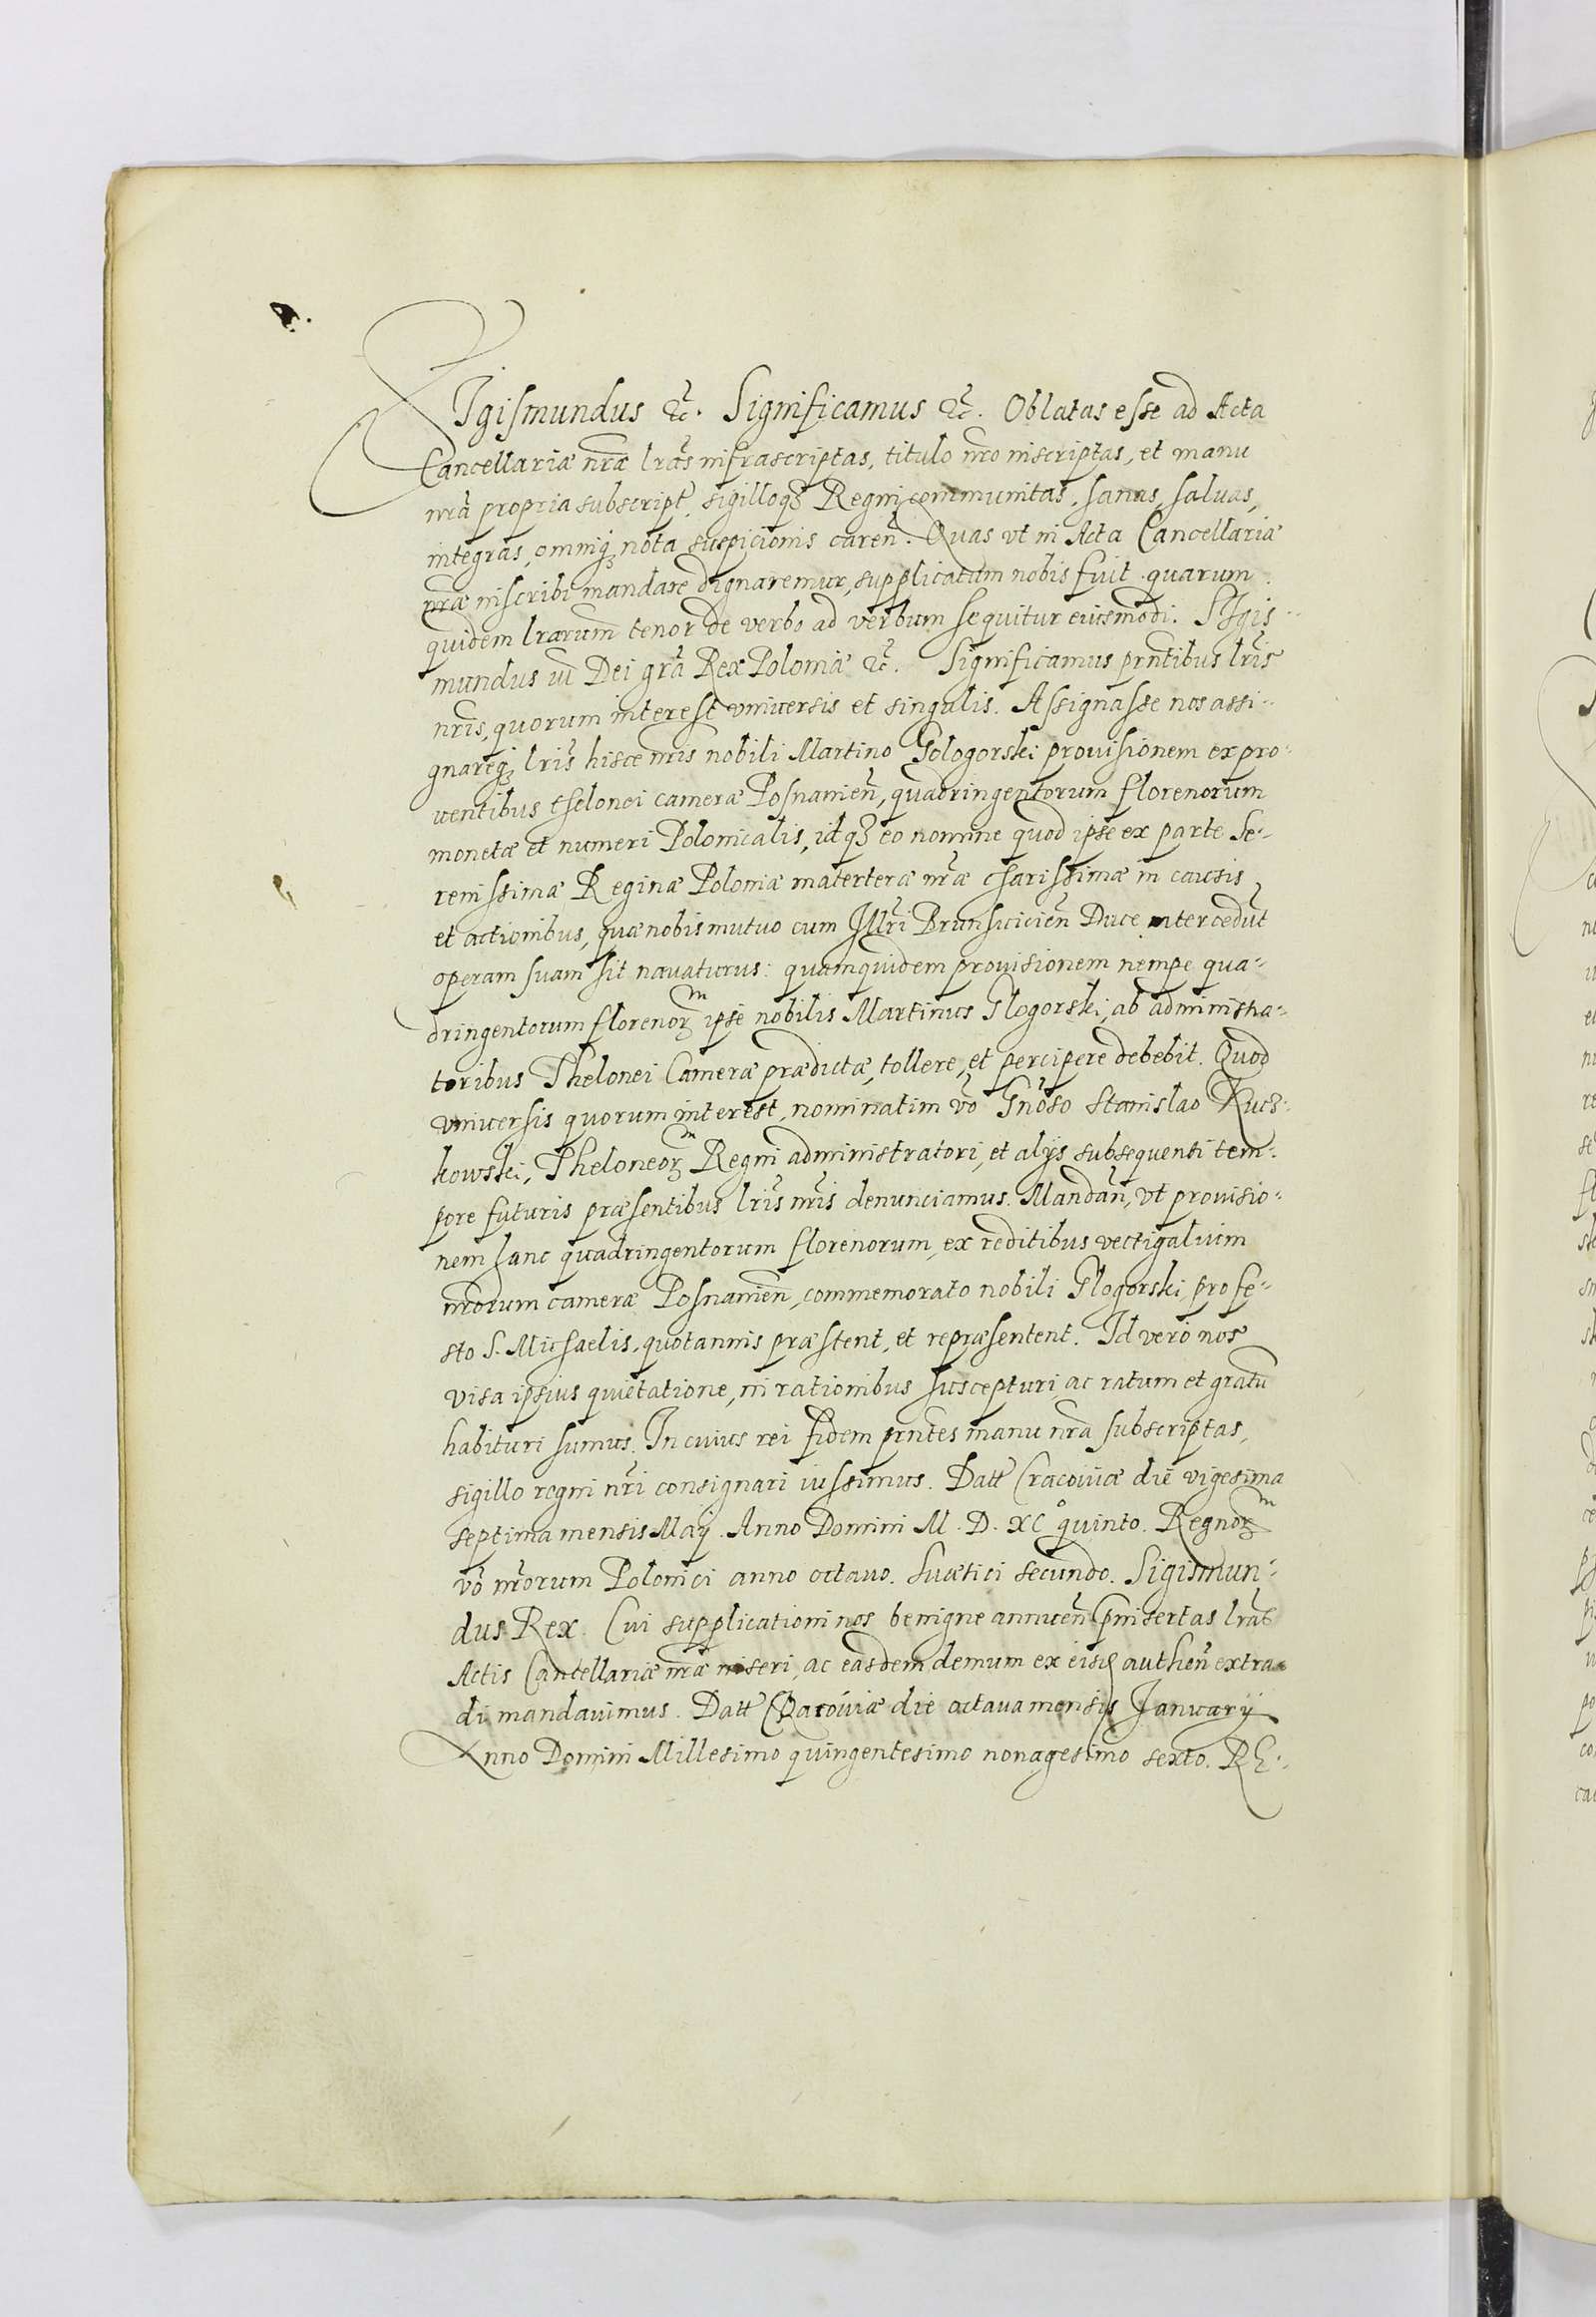 SIgismundus etc̃. Significamus etc̃. Oblatas esse ad Acta
Cancellariæ nr̃æ lrãs infrascriptas, titulo nr̃o inscriptas, et manu
nr̃a propria subscript̃, sigilloq₃ Regni communitas, sanas, saluas,
integras, omniq₃ nota suspicionis careñ. Quas vt in Acta Cancellariæ
nr̃æ inscribi mandare dignaremur, supplicatum nobis fuit. quarum
quidem lr̃arum tenor de verbo ad verbum sequitur eiusmodi. SIgis-
mundus iii Dei gr̃a Rex Poloniæ etc̃. Significamus prñtibus lr̃is
nr̃is, quorum interest vniuersis et singulis. Assignasse nos assi-
gnareq₃ lr̃is hisce nr̃is nobili Martino Gologorski prouisionem ex pro-
uentibus thelonei cameræ Posnanieñ, quadringentorum florenorum
monetæ et numeri Polonicalis, idq₃ eo nomine quod ipse ex parte Se-
renissimæ Reginæ Poloniæ materteræ nr̃æ charissimæ in causis
et actionibus, quæ nobis mutuo cum Illr̃i Brunsuicieñ Duce intercedũt
operam suam sit nauaturus: quamquidem prouisionem nempe qua-
dringentorum florenorᵐ ipse nobilis Martinus Glogorski, ab administra-
toribus Thelonei Cameræ prædictæ, tollere, et percipere debebit. Quod
vniuersis quorum interest, nominatim võ Gnõso Stanislao Kucz-
kowski, Theloneorᵐ Regni administratori, et alijs subsequenti tem-
pore futuris præsentibus lr̃is nr̃is denunciamus. Mandañ, vt prouisio-
nem hanc quadringentorum florenorum, ex reditibus vectigalium
nr̃orum cameræ Posnanieñ, commemorato nobili Glogorski, pro fe-
sto S. Michaelis, quotannis præstent, et repræsentent. Id vero nos
visa ipsius quietatione, in rationibus suscepturi, ac ratum et gratũ
habituri sumus. In cuius rei fidem prñtes manu nr̃a subscriptas,
sigillo regni nr̃i consignari iussimus. Datt Cracouiæ die vigesima
septima mensis Maij. Anno Domini M. D. XC° quinto. Regnorᵐ
võ nr̃orum Polonici anno octauo. Suætici secundo. Sigismun-
dus Rex. Cui supplicationi nos benigne annueñ p̃insertas lrãs
Actis Cancellariæ nr̃æ inseri, ac easdem demum ex eisd autheñ extra-
di mandauimus. Datt Cracouiæ die octaua mensis Januarij
Anno Domini Millesimo quingentesimo nonagesimo sexto. RE-